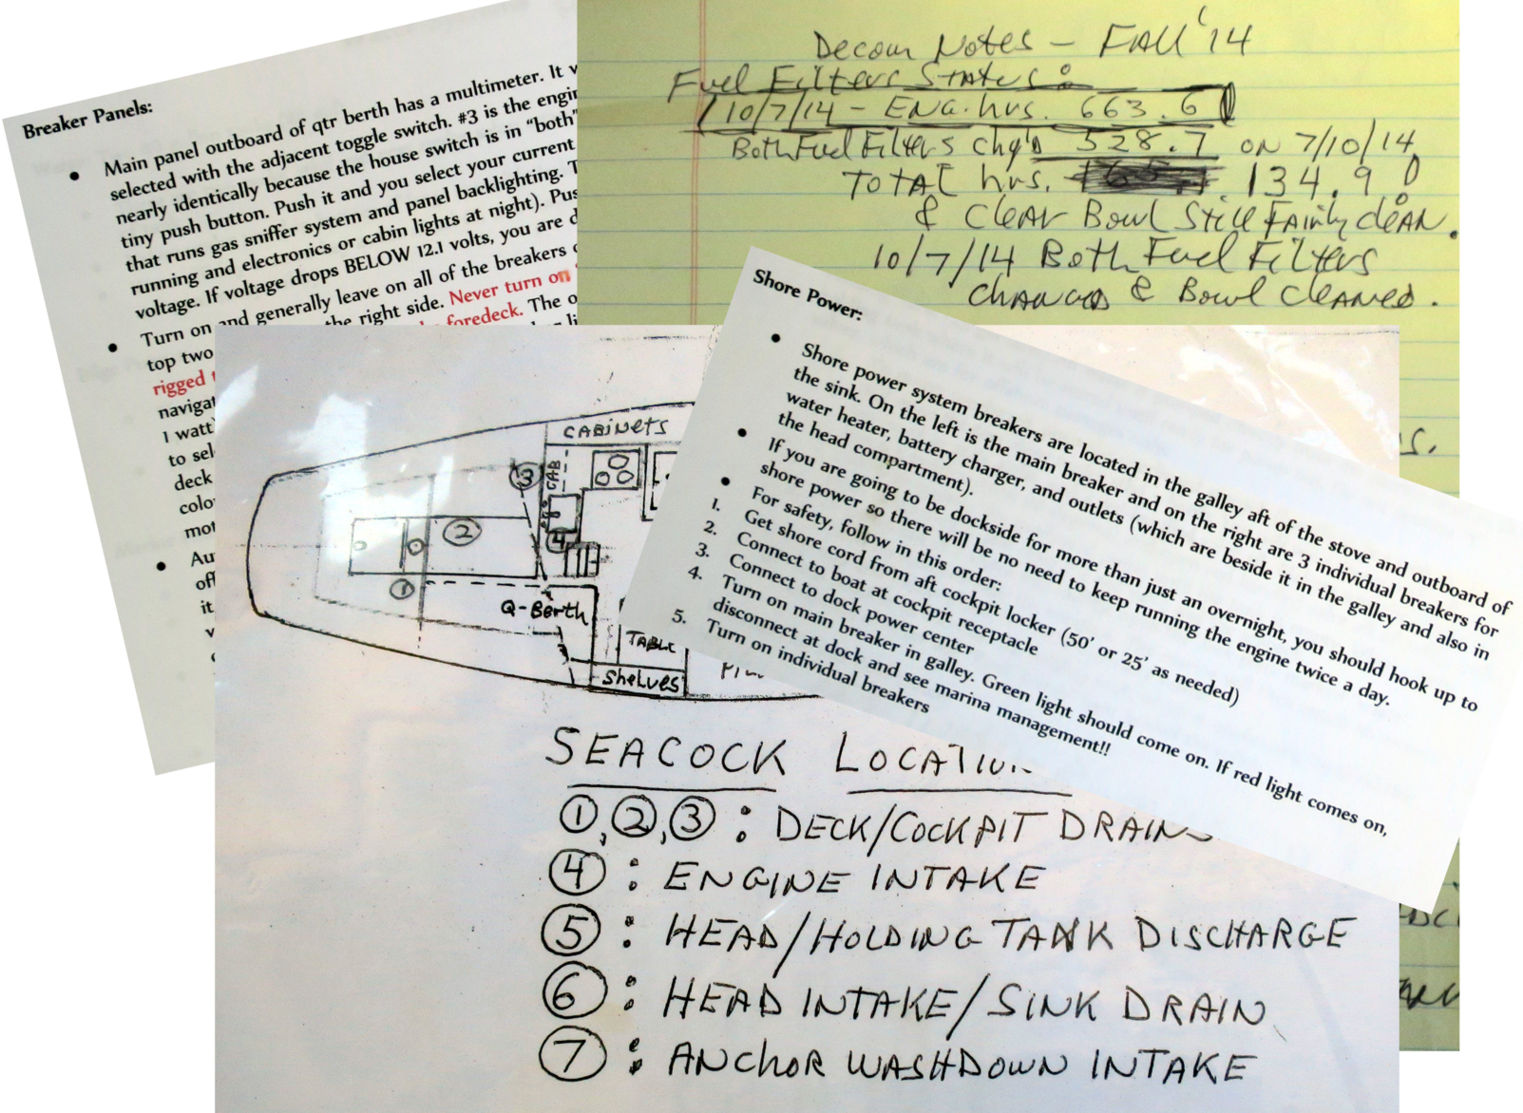 Breaker Panels:
• Main panel outboard of qtr berth has a multimeter. It
selected with the adjacent toggle switch. #3 is the
nearly identically because the house switch is in “both”
tiny push button. Push it and you select your current
that runs gas sniffer system and panel backlighting.
running and electronics or cabin lights at night).
voltage. If voltage drops BELOW 12.1 volts, you are
• Turn on and generally leave on all of the breakers
top two the right side. Never turn on
rigged foredeck. The
1 watt
to
deck
Decom Notes – FAll '14
Fuel Filters Status:
10/7/14 – ENG. hrs. 663.6
Both Fuel Filters chg'd 528.7 on 7/10/14
TOTAL hrs. 134.9!
& CleAR Bowl Still FAirly cleAN.
10/7/14 Both Fuel Filters
chANged & Bowl CleANed.
Shore Power:
• Shore power system breakers are located in the galley aft of the stove and outboard of
the sink. On the left is the main breaker and on the right are 3 individual breakers for
water heater, battery charger, and outlets (which are beside it in the galley and also in
the head compartment).
• If you are going to be dockside for more than just an overnight, you should hook up to
shore power so there will be no need to keep running the engine twice a day.
• For safety, follow in this order:
1. Get shore cord from aft cockpit locker (50’ or 25’ as needed)
2. Connect to boat at cockpit receptacle
3. Connect to dock power center
4. Turn on main breaker in galley. Green light should come on. If red light comes on,
disconnect at dock and see marina management!!
5. Turn on individual breakers
CABINETS
CAB
3
2
4
1
Q-Berth
TABLE
Shelves
SEACOCK LOCATION
1, 2, 3 : DECK/COCKPIT DRAINS
4 : ENGINE INTAKE
5 : HEAD/HOLDING TANK DISCHARGE
6 : HEAD INTAKE/SINK DRAIN
7 : ANCHOR WASHDOWN INTAKE